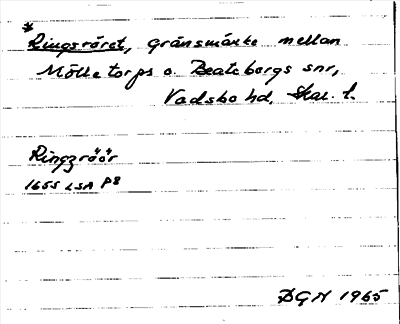 *Ringsröret, gränsmärke mellan
Mölltorps o. Beatebergs snr,
Vadsbo hd, Skar. l.
Ringzröör
1655 LSA P8
BGN 1965